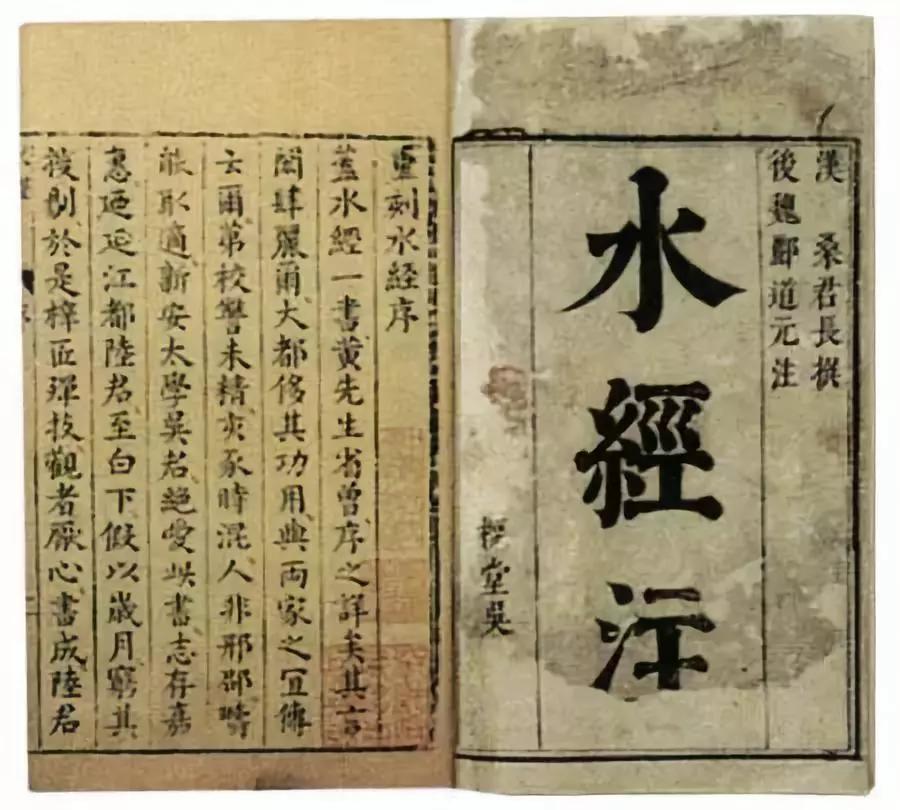 漢 桑君長撰
後魏酈道元注
水經注
堂吳
重刻水經序
蓋水經一書黃先生省曾序之詳矣其言
閎肆麗爾大都侈其功用與両家之冝傳
云爾第校讐未精亥豕時混人非邢邵疇
能取適新安太學吳君絕愛此書志存嘉
惠廼延江都陸君至白下假以歲月窮其
搜剔於是梓匠殫技觀者厭心書成陸君